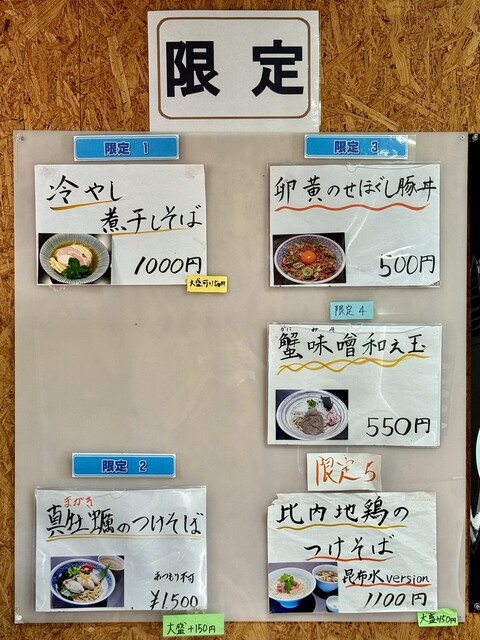 限定
限定 1
冷やし
煮干しそば
1000円
大盛可+150円
限定 2
まがき
真牡蠣のつけそば
あつもり不可
¥1,500
大盛+150円
限定 3
卵黄のせほぐし豚丼
500円
限定 4
かに みそ
蟹味噌和え玉
550円
限定5
比内地鶏の
つけそば
昆布水version
1100円
大盛+150円